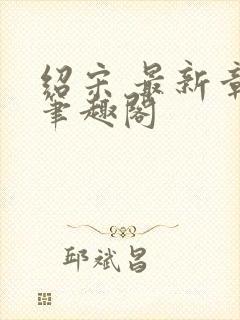 绍宋 最新章
笔趣阁
邱斌昌